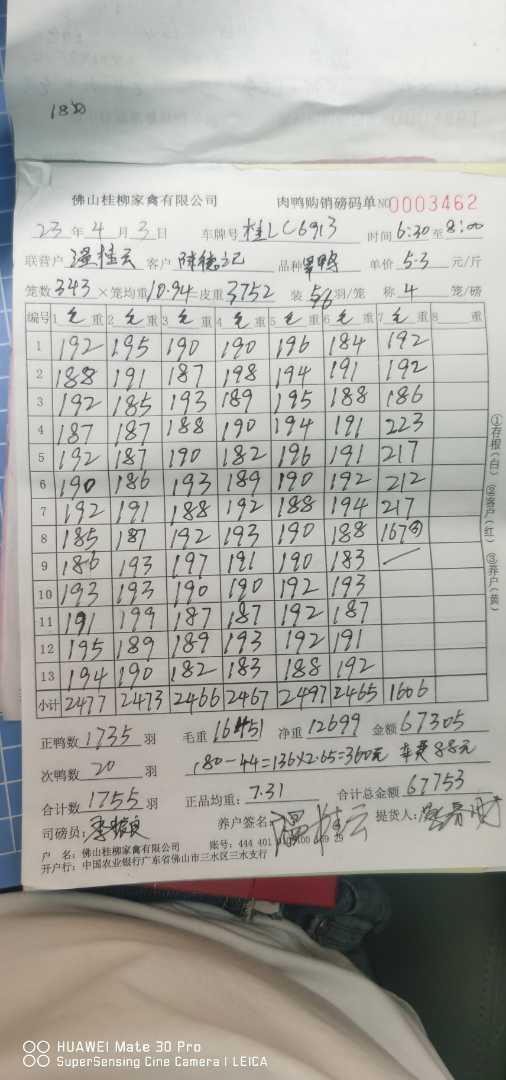 1820
佛山桂柳家禽有限公司 肉鸭购销磅码单 NO 0003462
23 年 4 月 3 日 车牌号 桂LC6913 时间 6:30 至 8:00
联营户 温桂云 客户 陈德记 品种 单价 5.3 元/斤
笼数 343 ×笼均重 10.94 皮重 3752 装 5/6 羽/笼 称 4 笼/磅
编号 1 毛 重 2 毛 重 3 毛 重 4 毛 重 5 毛 重 6 毛 重 7 毛 重 8 重
1 192 195 190 190 196 184 192
2 188 191 187 198 194 191 192
3 192 185 193 189 195 188 186
4 187 187 188 190 194 191 223
5 192 187 190 182 196 191 217
6 190 186 193 189 190 192 212
7 192 191 188 192 188 194 217
8 185 187 192 193 190 188 167③
9 186 193 197 191 190 183
10 193 193 190 190 192 193
11 191 199 187 187 192 187
12 195 189 189 193 192 191
13 194 190 182 183 188 192
小计 2477 2473 2466 2467 2497 2465 1606
①存根(白) ②客户(红) ③养户(黄)
正鸭数 1735 羽 毛重 16451 净重 12699 金额 67305
次鸭数 20 羽 180-44=136×2.65=360元 车费 88元
合计数 1755 羽 正品均重: 7.31 合计总金额 67753
司磅员: 养户签名: 温桂云 提货人:
户 名: 佛山桂柳家禽有限公司 账号: 444 401
开户行: 中国农业银行广东省佛山市三水区三水支行
HUAWEI Mate 30 Pro
SuperSensing Cine Camera | LEICA